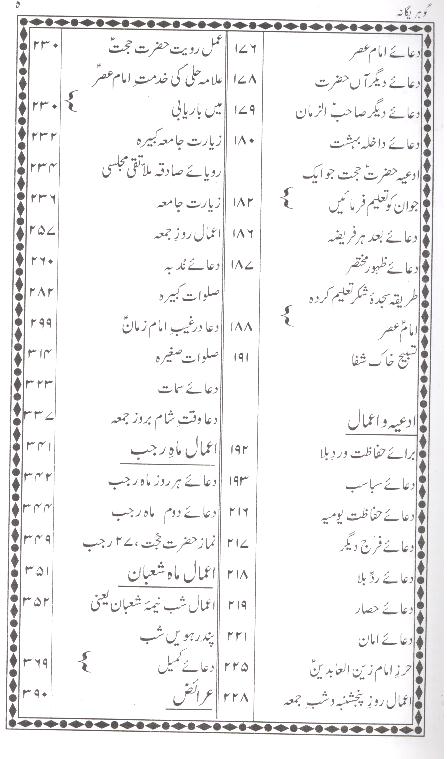 گوہر یگانہ
۵
دعائے امام عصر ۱۷۶
دعائے دیگر آں حضرت ۱۷۸
دعائے دیگر صاحب الزمان ۱۷۹
دعائے داخلہ بہشت ۱۸۰
ادعیہ حضرت حجت جو ایک
جوان کو تعلیم فرمائیں } ۱۸۲
دعائے بعد ہر فریضہ ۱۸۶
دعائے ظہور مختصر ۱۸۷
طریقہ سجدۂ شکر تعلیم کردہ
امام عصر } ۱۸۸
تسبیح خاک شفا ۱۹۱
ادعیہ و اعمال
برائے حفاظت و رد بلا ۱۹۲
دعائے سباسب ۱۹۳
دعائے حفاظت یومیہ ۲۱۶
دعائے فرج دیگر ۲۱۷
دعائے رد بلا ۲۱۸
دعائے حصار ۲۱۹
دعائے امان ۲۲۱
حرز امام زین العابدین ۲۲۵
اعمال روز پنجشنبہ و شب جمعہ ۲۲۸
عمل رویت حضرت حجت ۲۳۰
علامہ حلی کی خدمت امام عصر
میں باریابی } ۲۳۰
زیارت جامعہ کبیرہ ۲۳۲
رویائے صادقہ ملا تقی مجلسی ۲۳۴
زیارت جامعہ ۲۳۶
اعمال روز جمعہ ۲۵۷
دعائے ندبہ ۲۶۰
صلوات کبیرہ ۲۸۲
دعا در غیبت امام زمان ۲۹۹
صلوات صغیرہ ۳۱۴
دعائے سمات ۳۲۳
دعا وقت شام بروز جمعہ ۳۳۷
اعمال ماہ رجب ۳۴۱
دعائے ہر روز ماہ رجب ۳۴۲
دعائے دوم ماہ رجب ۳۴۴
نماز حضرت حجت، ۲۷ رجب ۳۴۹
اعمال ماہ شعبان ۳۵۱
اعمال شب نیمۂ شعبان یعنی ۳۵۲
پندرہویں شب
دعائے کمیل } ۳۶۹
عرائض ۳۹۰